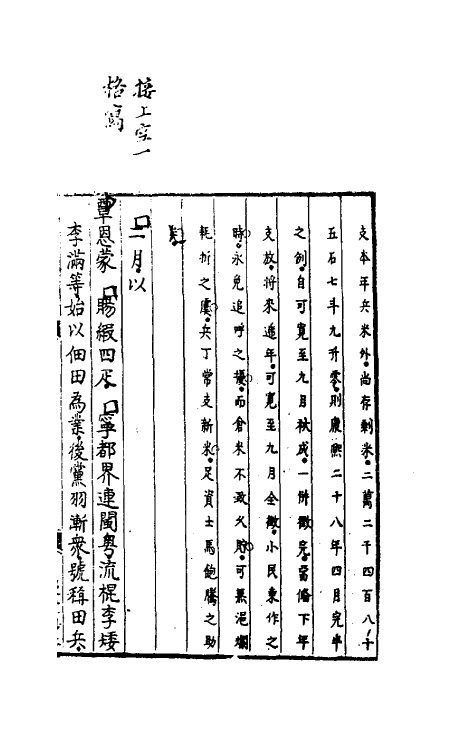 接上空一
格寫
支本年兵米外。尚存剩米。二萬二千四百八十
五石七斗九升零。則康熙二十八年四月完半
之例。自可寬至九月秋成。一併徵完。當備下年
支放。將來遞年。可寬至九月全徵。小民東作之
時。永免追呼之擾。而倉米不致久貯。可無浥爛
耗折之虞。兵丁常支新米。足資士馬飽騰之助
矣。
二月。以
覃恩蒙 賜緞四疋。 寧都界連閩粵。流棍李矮
李滿等。始以佃田為業。後黨羽漸衆。號稱田兵。